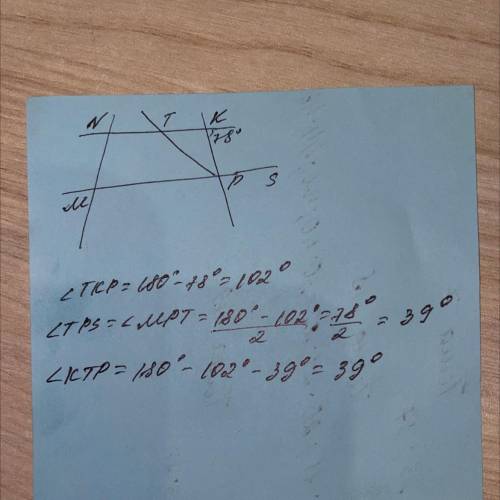 N T K
78°
M P S
∠TKP = 180° - 78° = 102°
∠TPS = ∠MPT = (180° - 102°)/2 = 78°/2 = 39°
∠KTP = 180° - 102° - 39° = 39°